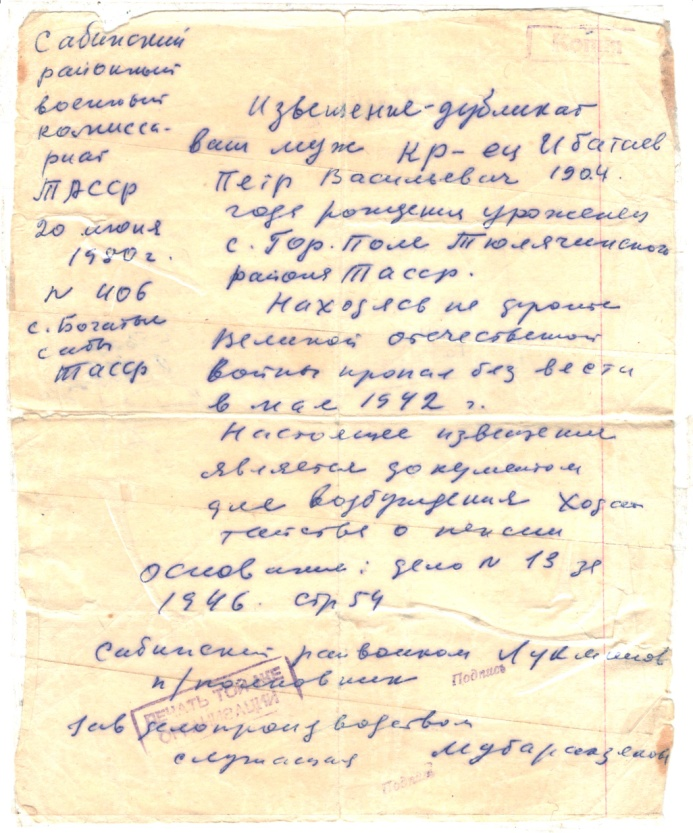 Сабинский
районный
военный
комисса-
риат
ТАССР
20 июня
1980 г.
N 406
с. Богатые
сабы
ТАССР
Копия
Извещение-дубликат
ваш муж кр-ец Ибатаев
Петр Васильевич 1904.
года рождения уроженец
с. Гор. Поле Тюлячинского
района ТАССР.
Находясь на фронте
Великой отечественной
войны пропал без вести
в мае 1942 г.
Настоящее извещение
является документом
для возбуждения ходат
тайства о пенсии
Основание: дело N 13 за
1946. стр 54
Сабинский райвоенком Лукманов
п/полковник
Подпись
ПЕЧАТЬ ТОЙ ЖЕ
ОРГАНИЗАЦИИ
Зав делопроизводством
служащая
Подпись